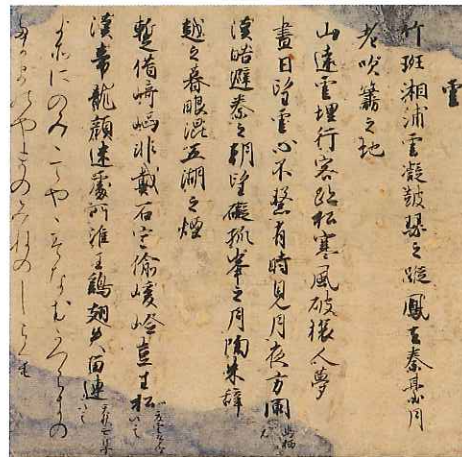 雲
竹斑湘浦雲凝鼓瑟之蹤鳳去秦臺月
老吹簫之地
山遠雲埋行客跡松寒風破旅人夢
盡日望雲心不繫有時見月夜方閑
漢晧避秦之朝望礙孤峯之月陶朱辞
越之暮眼混五湖之煙
蹔借崎嶇非戴石空偷峻嶮豈生松
漢帝龍顔迷處所淮王鷄翅失留連
よそにのみてややみなむかつらきの
たかまのやまのみねのしらくも